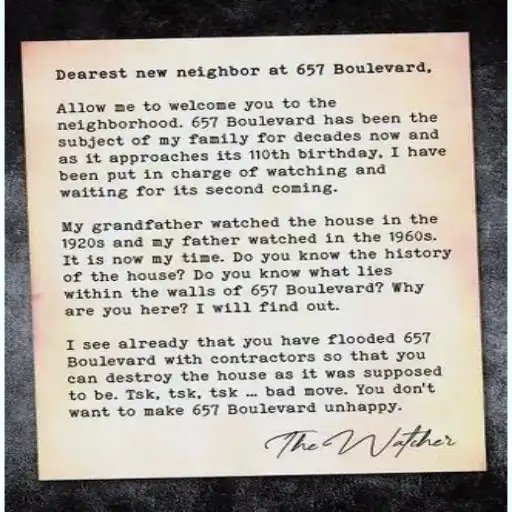 Dearest new neighbor at 657 Boulevard,
Allow me to welcome you to the
neighborhood. 657 Boulevard has been the
subject of my family for decades now and
as it approaches its 110th birthday, I have
been put in charge of watching and
waiting for its second coming.
My grandfather watched the house in the
1920s and my father watched in the 1960s.
It is now my time. Do you know the history
of the house? Do you know what lies
within the walls of 657 Boulevard? Why
are you here? I will find out.
I see already that you have flooded 657
Boulevard with contractors so that you
can destroy the house as it was supposed
to be. Tsk, tsk, tsk … bad move. You don't
want to make 657 Boulevard unhappy.
The Watcher